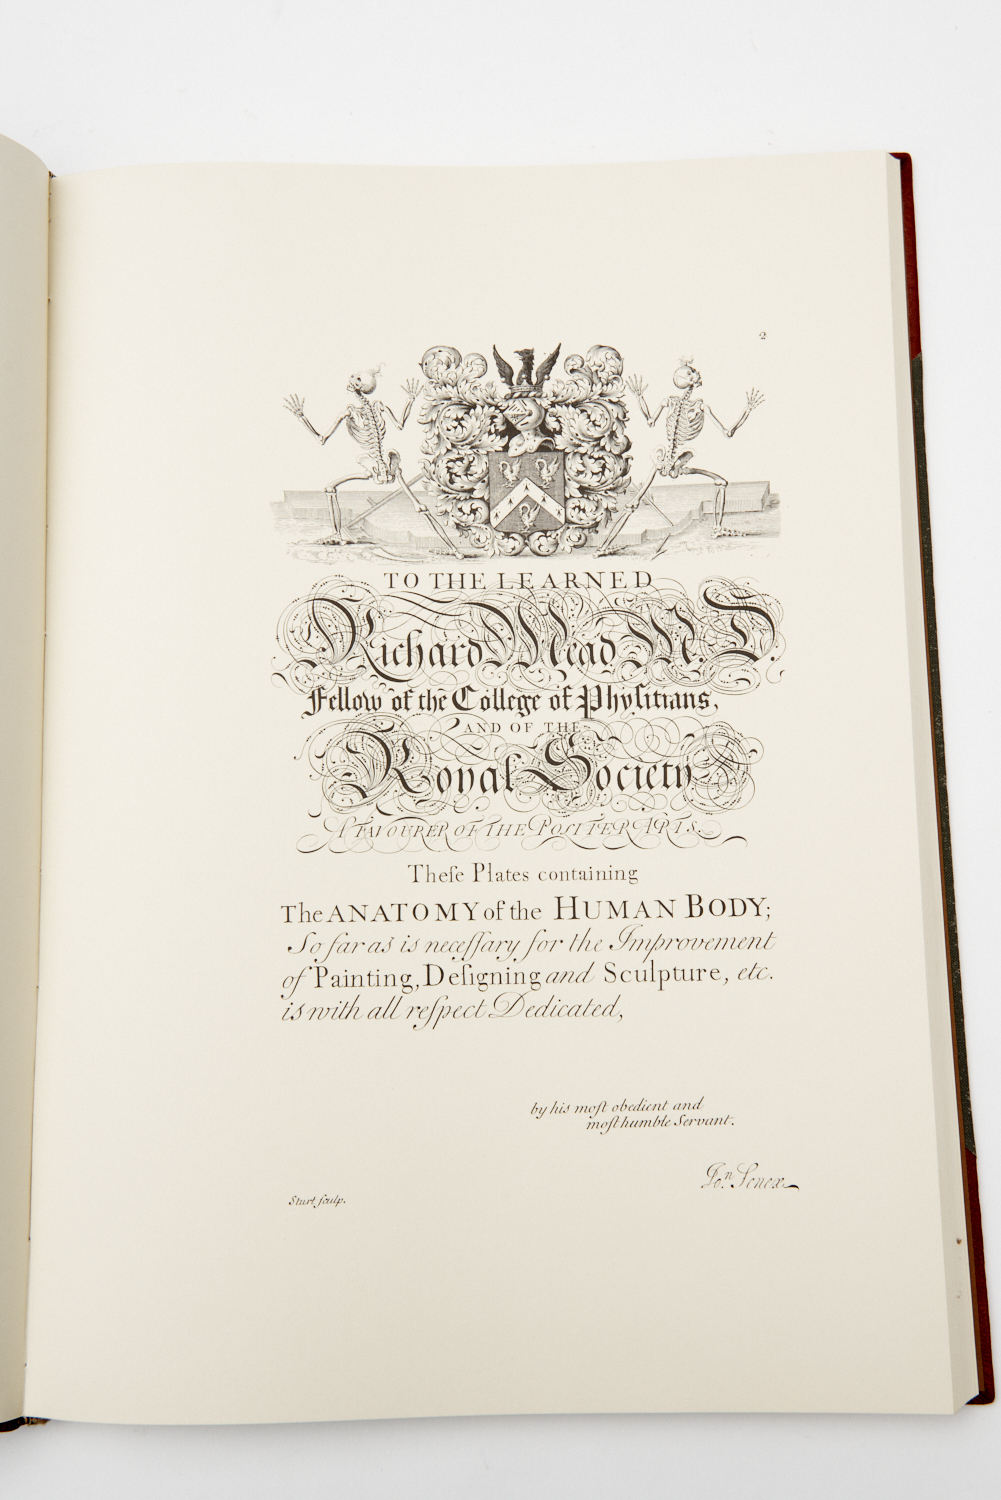 2
TO THE LEARNED
Richard Mead M.D.
Fellow of the College of Phyſitians,
AND OF THE
Royal Society
A FAVOURER OF THE POLITER ARTS.
Theſe Plates containing
The ANATOMY of the HUMAN BODY;
So far as is neceſſary for the Improvement
of Painting, Deſigning and Sculpture, etc.
is with all reſpect Dedicated,
by his moſt obedient and
moſt humble Servant.
Jon. Senex
Sturt ſculp.